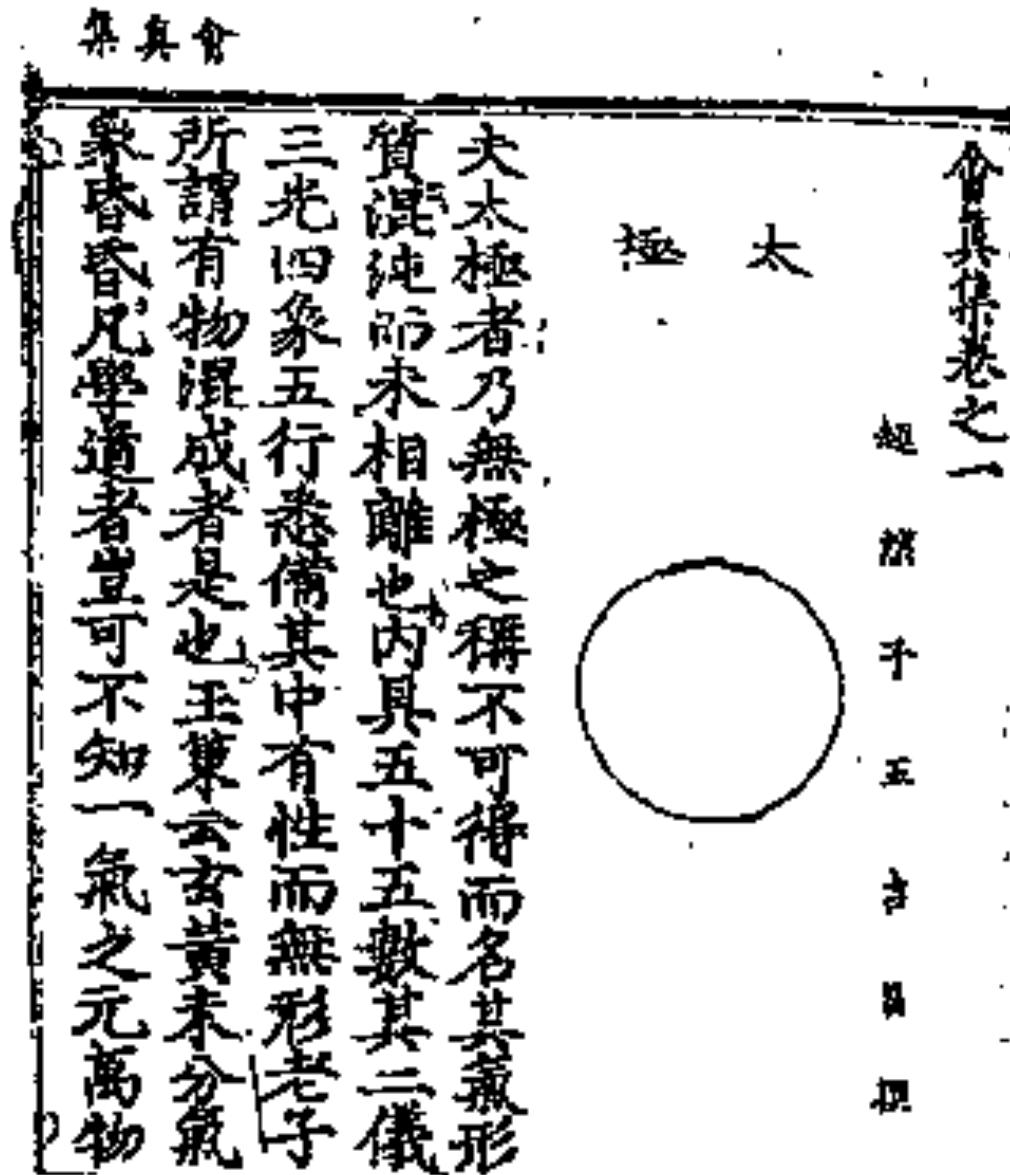 會真集
會真集卷之一
超然子王吉昌撰
太極
夫太極者乃無極之稱不可得而名其炁形
質混沌而未相離也內具五十五數其二儀
三光四象五行悉備其中有性而無形老子
所謂有物混成者是也王萊云玄黃未分氣
象昏昏凡學道者豈可不知一氣之元萬物